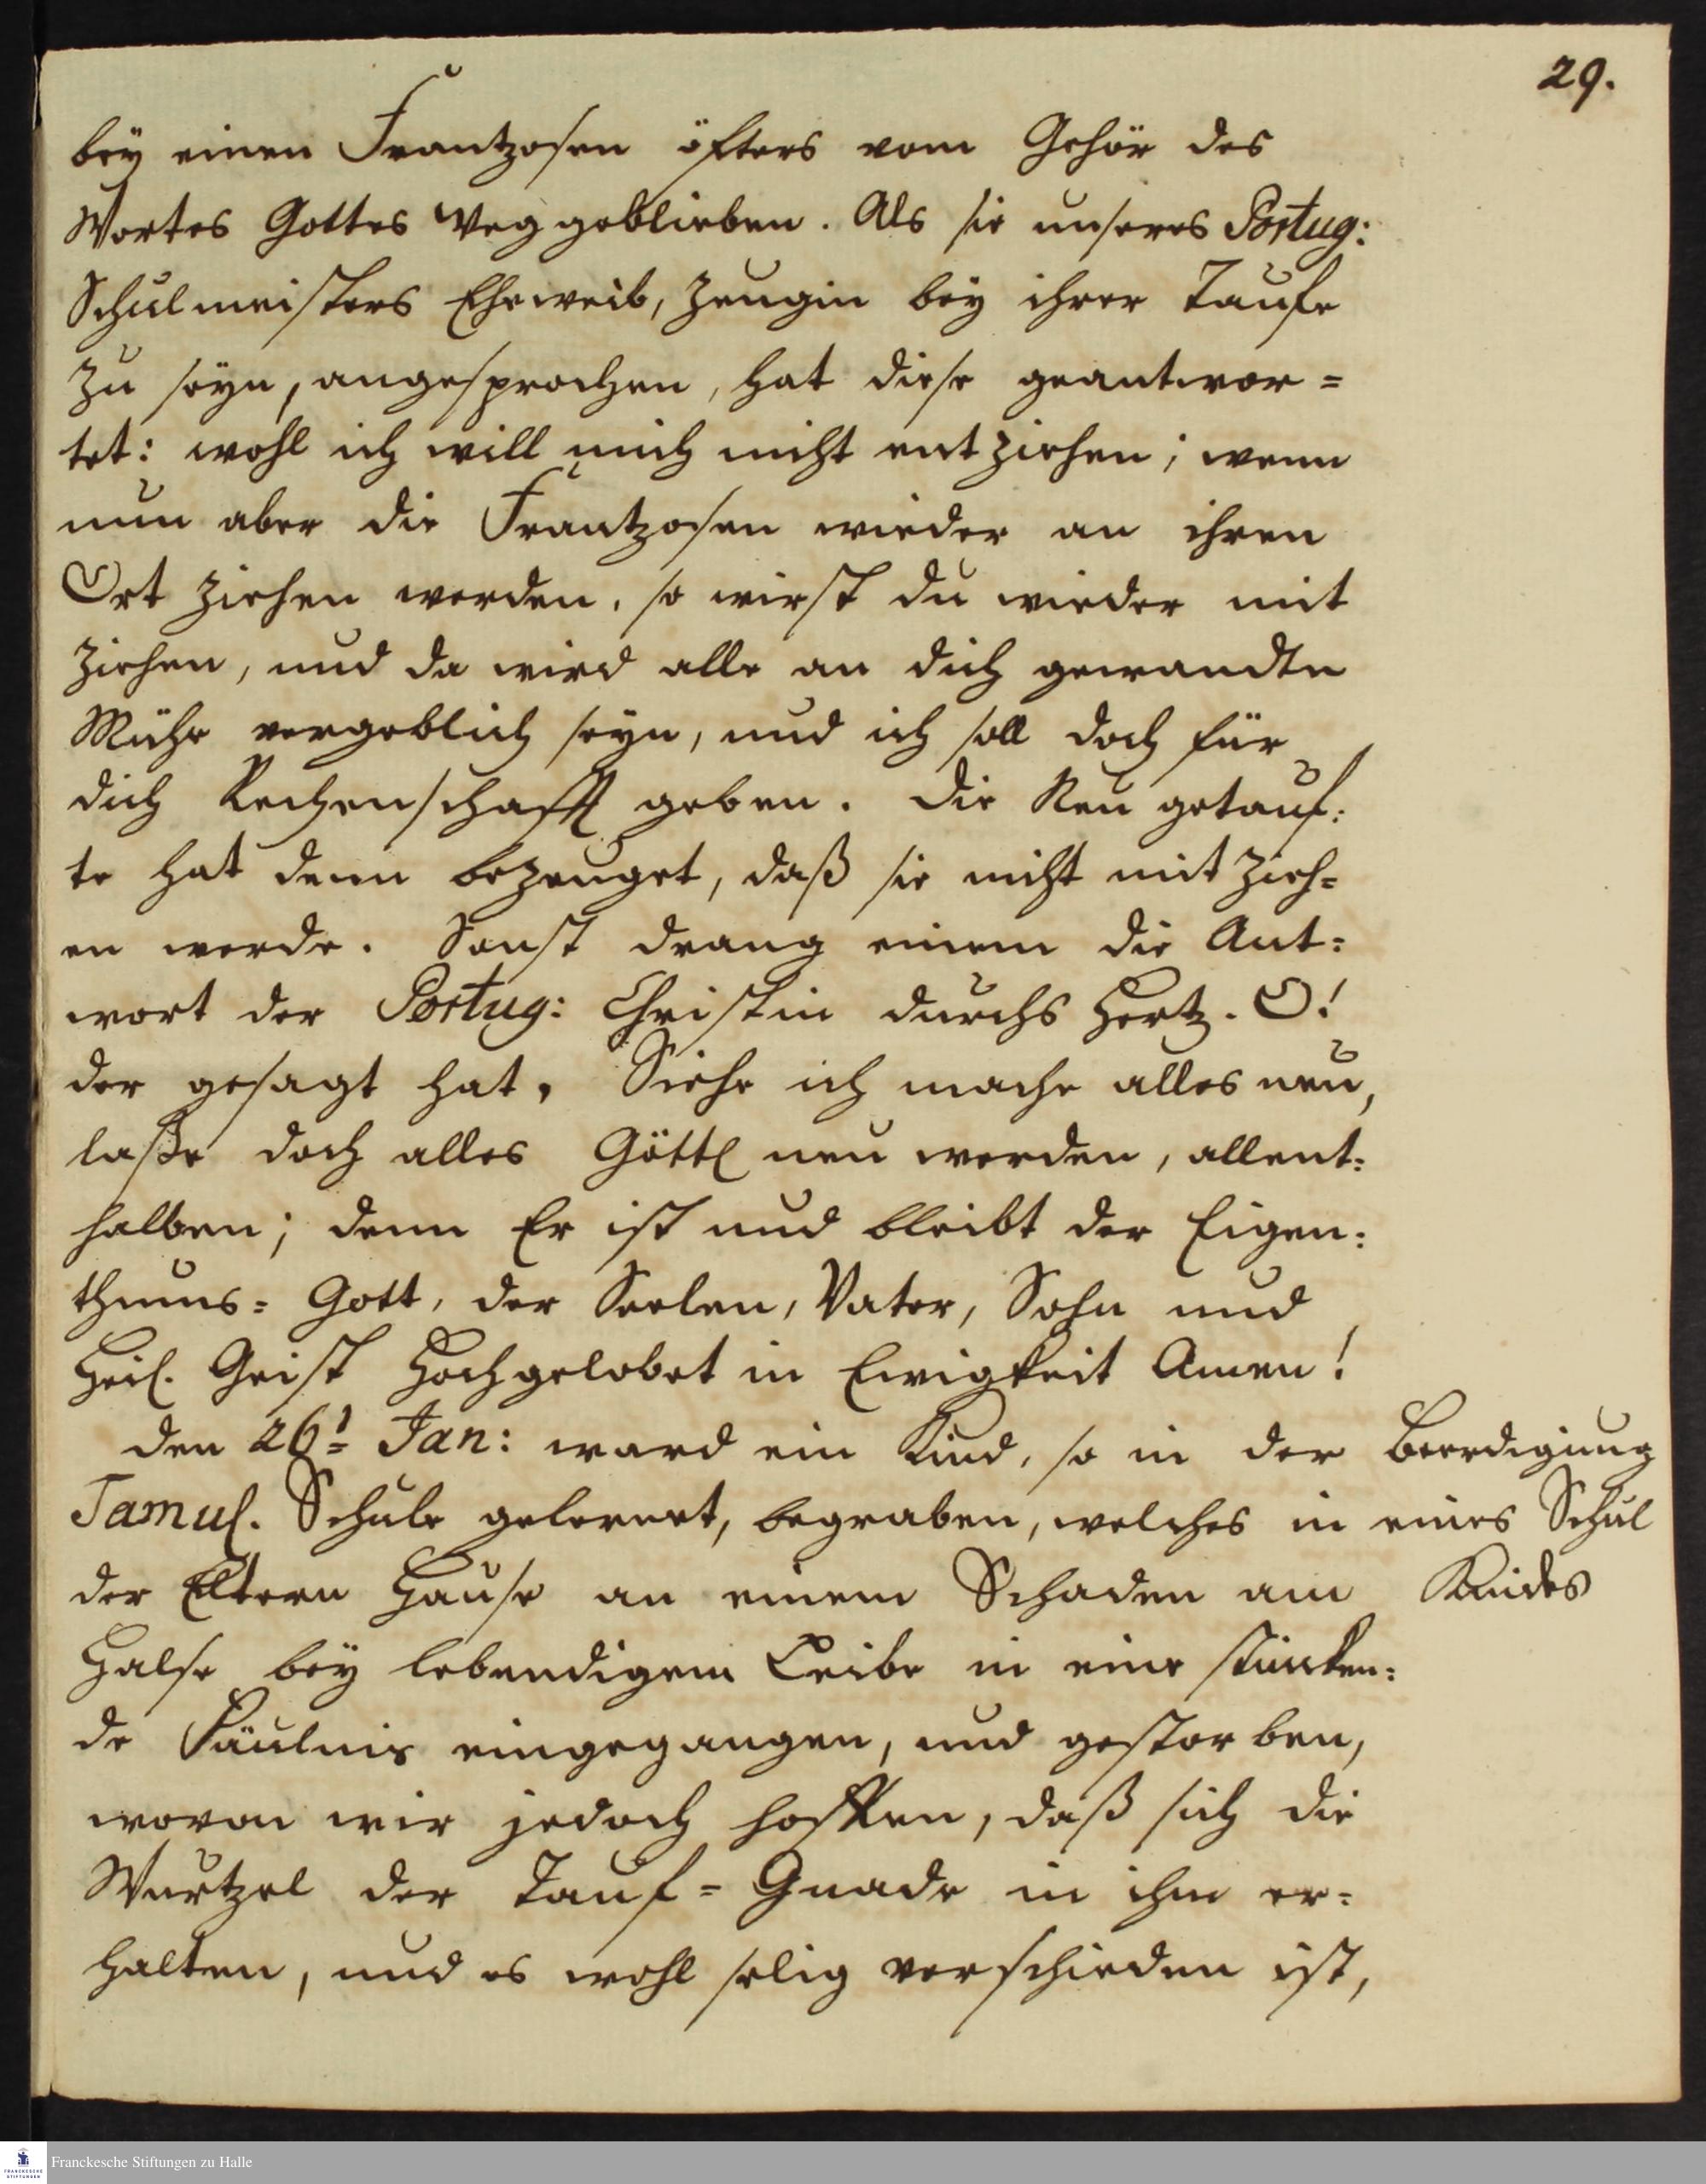 29.
bey einen Frantzosen öfters vom Gehör des
Wortes Gottes Weggeblieben. Als sie unseres Portug:
Schulmeisters Eheweib, Zeugin bey ihrer Taufe
zu seyn, angesprochen, hat diese geantwor=
tet: wohl ich will mich nicht entziehen; wenn
nun aber die Frantzosen wieder an ihren
Ort ziehen werden, so wirst du wieder mit
ziehen, und da wird alle an dich gewandte
Mühe vergeblich seyn, und ich soll doch für
dich Rechenschafft geben. Die Neu getauf:
te hat denn bezeuget, daß sie nicht mit zieh=
en werde. Sonst drang einem die Ant=
wort der Portug: Christin durchs Hertz. O!
der gesagt hat, Siehe ich mache alles neu,
laße doch alles Göttl neu werden, allent:
halben; denn Er ist und bleibt der Eigen:
thums= Gott, der Seelen, Vater, Sohn und
Heil. Geist Hochgelobet in Ewigkeit Amen!
den 26t Jan: ward ein Kind, so in der
Tamul. Schule gelernet, begraben, welches in
der Eltern Hause an einem Schaden am
Halse bey lebendigem Leibe in eine stincken:
de Fäulnis eingegangen, und gestorben,
wovon wir jedoch hoffen, daß sich die
Wurtzel der Tauf= Gnade in ihm er=
halten, und es wohl selig verschieden ist,
Beerdigung
eines Schul
Kindes
Franckesche Stiftungen zu Halle
FRANCKESCHE
STIFTUNGEN